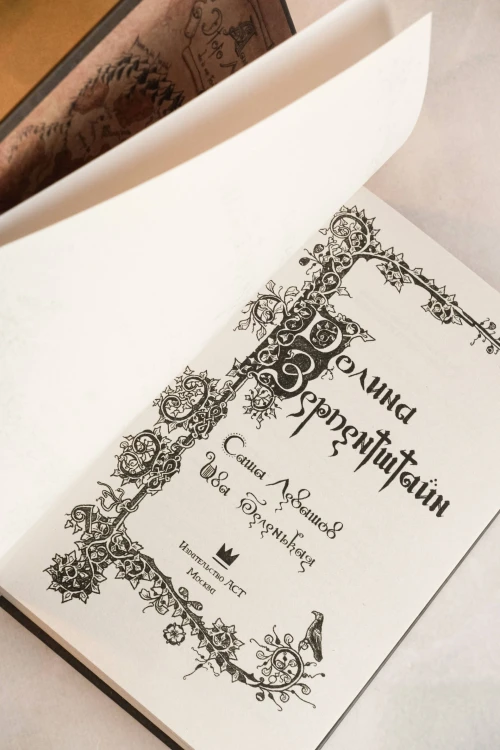 Долина
Зерпентштайн
Саша Левашов
Ива Беленькая
Издательство АСТ
Москва